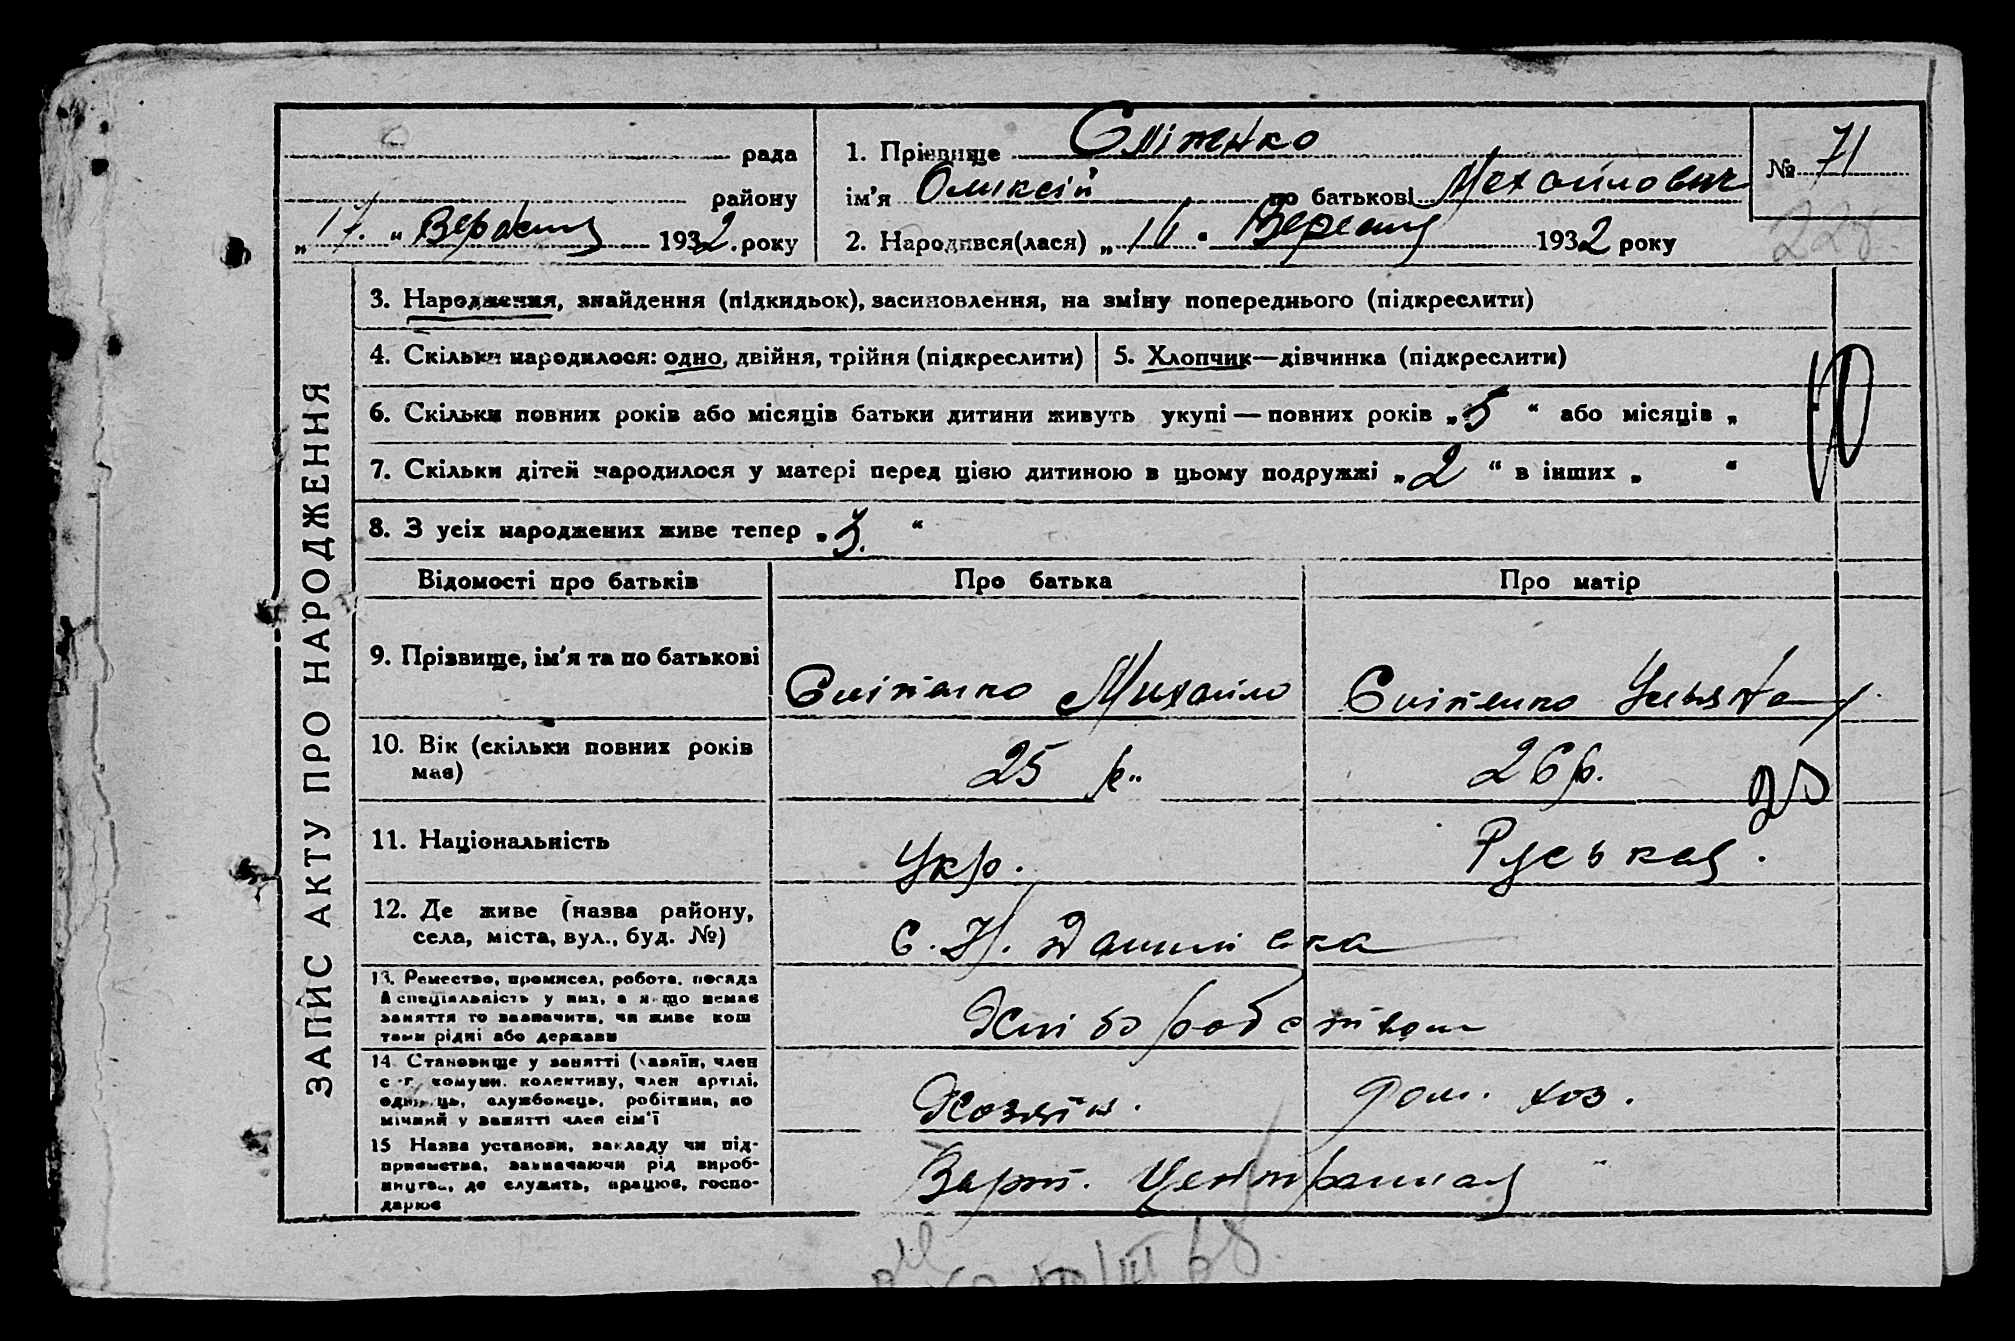 рада
1. Прізвище Єпітенко
№ 71
району
ім'я Оликсій по батькові Мехайлович
„ 17. “ Вересня 1932. року
2. Народився(лася) „ 16 “ Вересня 1932 року
228.
ЗАПИС АКТУ ПРО НАРОДЖЕННЯ
3. Народження, знайдення (підкидьок), засиновлення, на зміну попереднього (підкреслити)
4. Скільки народилося: одно, двійня, трійня (підкреслити)
5. Хлопчик—дівчинка (підкреслити)
6. Скільки повних років або місяців батьки дитини живуть укупі — повних років „ 5 “ або місяців „
7. Скільки дітей народилося у матері перед цією дитиною в цьому подружжі „ 2 “ в інших „ “
8. З усіх народжених живе тепер „ 3. “
Відомості про батьків
Про батька
Про матір
9. Прізвище, ім'я та по батькові
Єпітенко Михайло
Єпітенко
10. Вік (скільки повних років
має)
25 р.
26 р.
11. Національність
Укр.
Руська.
12. Де живе (назва району,
села, міста, вул., буд. №)
с. Н. Данилівка
13. Ремество, промисел, робота, посада
й спеціальність у них, а якщо немає
заняття то зазначити, чи живе кош
тами рідні або держави
Хліборобством
14. Становище у занятті (хазяїн, член
с.-г. комуни, колективу, член артілі,
одинець, службовець, робітник, по
мічний у занятті член сім'ї
Хозяїн.
Дом. хоз.
15 Назва установи, закладу чи під-
приємства, зазначаючи рід вироб-
ництва, де служить, працює, госпо-
дарює
Центральная "